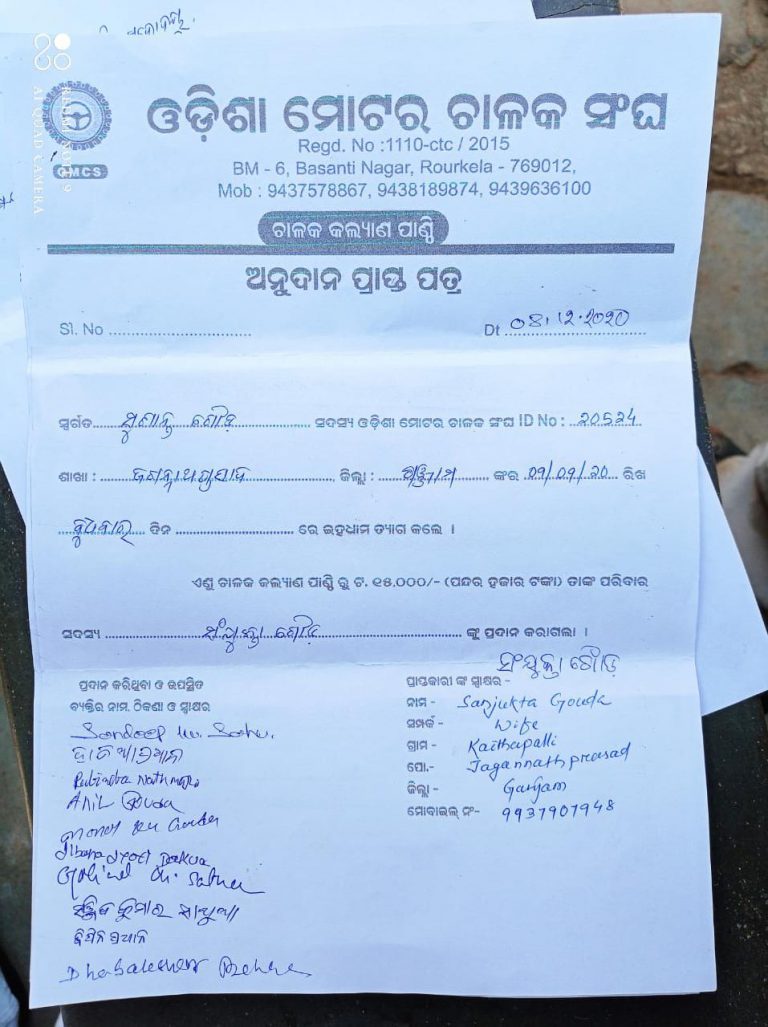 ଓଡ଼ିଶା ମୋଟର ଚାଳକ ସଂଘ
Regd. No :1110-ctc / 2015
BM - 6, Basanti Nagar, Rourkela - 769012,
Mob : 9437578867, 9438189874, 9439636100
OMCS
AI QUAD CAMERA
ଚାଳକ କଲ୍ୟାଣ ପାଣ୍ଠି
ଅନୁଦାନ ପ୍ରାପ୍ତ ପତ୍ର
Sl. No ..............................
Dt ୦୪.୧୨.୨୦୨୦
ସ୍ୱର୍ଗତ ସୁଶାନ୍ତ ଗୌଡ଼ ସଦସ୍ୟ ଓଡ଼ିଶା ମୋଟର ଚାଳକ ସଂଘ ID No : ୨୦୫୨୪
ଶାଖା : ଜଗନ୍ନାଥପ୍ରସାଦ, ଜିଲ୍ଲା : ଗଞ୍ଜାମ ଙ୍କର ୦୨/୦୨/୨୦ ରିଖ
ବୁଧବାର ଦିନ .............................. ରେ ଇହଧାମ ତ୍ୟାଗ କଲେ ।
ଏଣୁ ଚାଳକ କଲ୍ୟାଣ ପାଣ୍ଠି ରୁ ଟ. ୧୫,୦୦୦/- (ପନ୍ଦର ହଜାର ଟଙ୍କା) ତାଙ୍କ ପରିବାର
ସଦସ୍ୟ ସଂଯୁକ୍ତା ଗୌଡ଼ ଙ୍କୁ ପ୍ରଦାନ କରାଗଲା ।
ସଂଯୁକ୍ତା ଗୌଡ଼
ପ୍ରାପ୍ତକାରୀ ଙ୍କ ସ୍ୱାକ୍ଷର -
ନାମ - Sanjukta Gouda
ସମ୍ପର୍କ - Wife
ଗ୍ରାମ - Kaithapalli
ପୋ.- Jagannathprasad
ଜିଲ୍ଲା - Ganjam
ମୋବାଇଲ୍ ନଂ- 9937907948
ପ୍ରଦାନ କରିଥିବା ଓ ଉପସ୍ଥିତ
ବ୍ୟକ୍ତିର ନାମ, ଠିକଣା ଓ ସ୍ୱାକ୍ଷର
Sandeep Ku. Sahu.
Anil Gouda
Ku Gouda
Ch. Sahu
କୁମାର
ବିପିନ ପ୍ରଧାନ
Dhabaleswar Behera